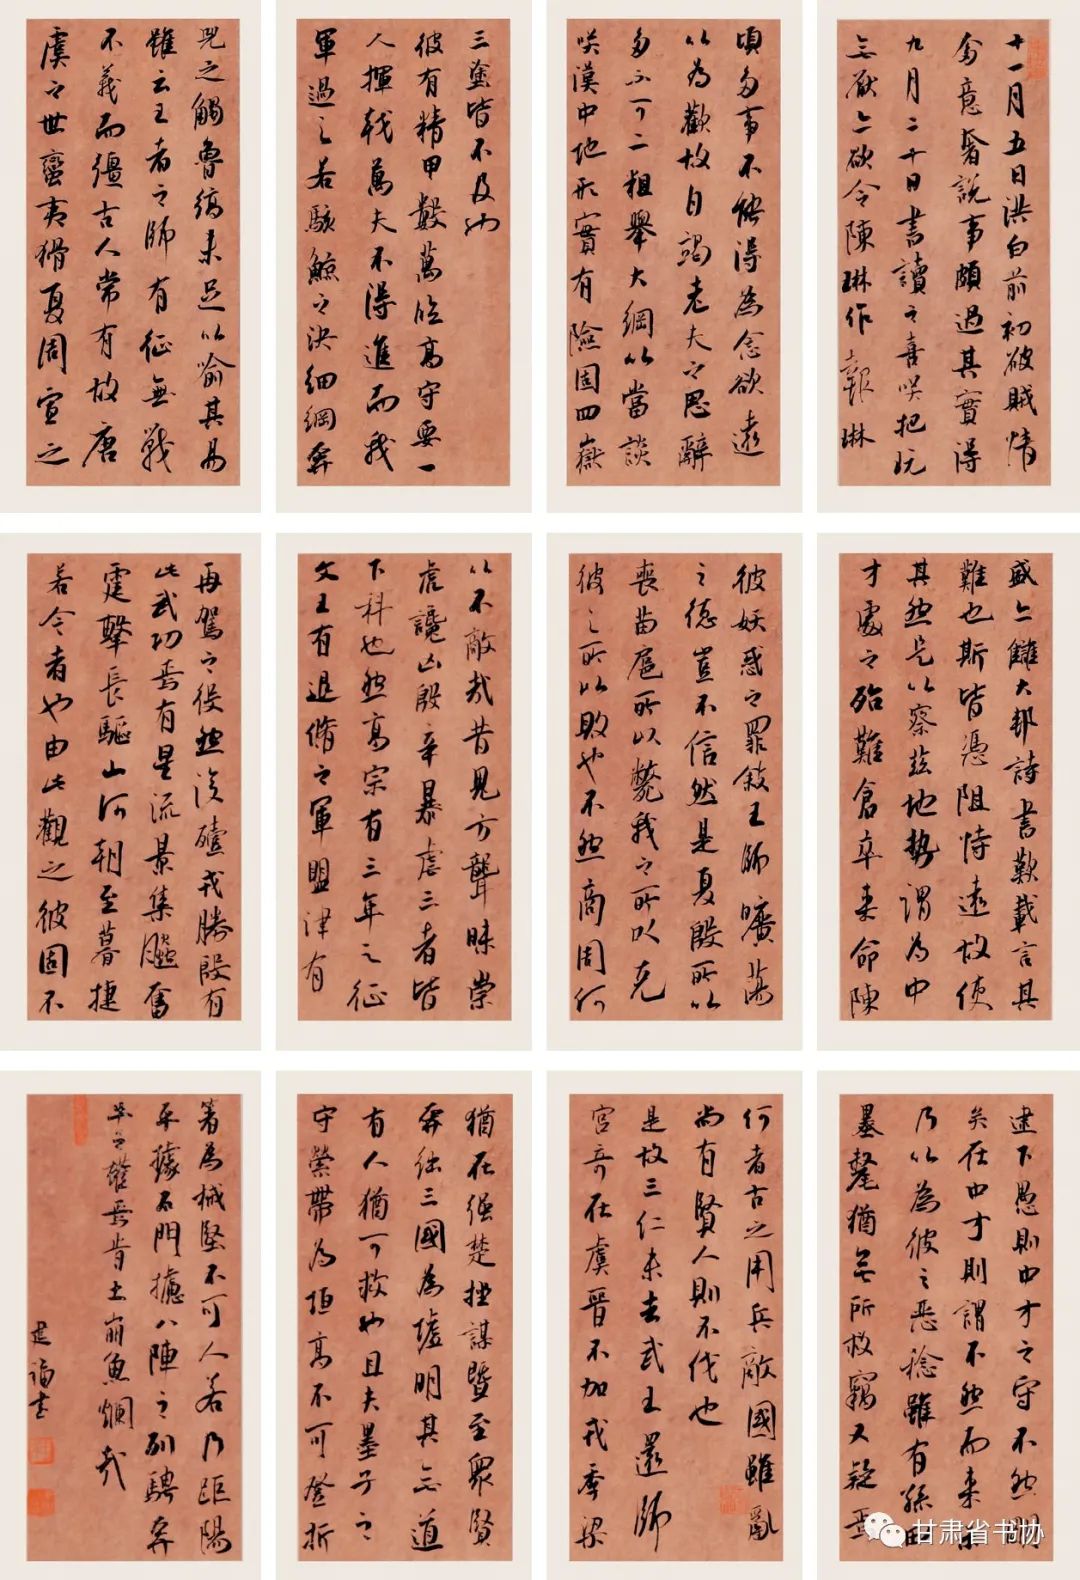 十一月五日洪白前初破賊情
奓意奢說事頗過其實得
九月二十日書讀之喜笑把玩
無厭亦欲令陳琳作報琳
頃多事不能得為念欲遠
以為歡故自竭老夫之思辭
多不可一一粗舉大綱以當談
笑漢中地形實有險固四嶽
三塗皆不及也
彼有精甲數萬臨高守要一
人揮戟萬夫不得進而我
軍過之若駭鯨之決細網奔
兕之觸魯縞未足以喻其易
雖云王者之師有征無戰
不義而彊古人常有故唐
虞之世蠻夷猾夏周宣之
盛亦讎大邦詩書歎載言其
難也斯皆憑阻恃遠故使
其然是以察茲地勢謂為中
才處之殆難倉卒來命陳
彼妖惑之罪敘王師曠蕩
之德豈不信然是夏殷所以
喪苗扈所以斃我之所以克
彼之所以敗也不然商周何
以不敵哉昔鬼方聾昧崇
虎讒凶殷辛暴虐三者皆
下科也然高宗有三年之征
文王有退脩之軍盟津有
再駕之役然後殪戎勝殷有
此武功焉有星流景集飈奮
霆擊長驅山河朝至暮捷
若今者也由此觀之彼固不
逮下愚則中才之守不然明
矣在中才則謂不然而來示
乃以為彼之惡稔雖有孫田
墨氂猶無所救竊又疑焉
何者古之用兵敵國雖亂
尚有賢人則不伐也
是故三仁未去武王還師
宮奇在虞晉不加戎季梁
猶在強楚挫謀暨至眾賢
奔絀三國為墟明其無道
有人猶可救也且夫墨子之
守縈帶為垣高不可登折
箸為械堅不可入若乃距陽
平據石門攄八陣之列騁奔
牛之權焉肯土崩魚爛哉
書
甘肃省书协